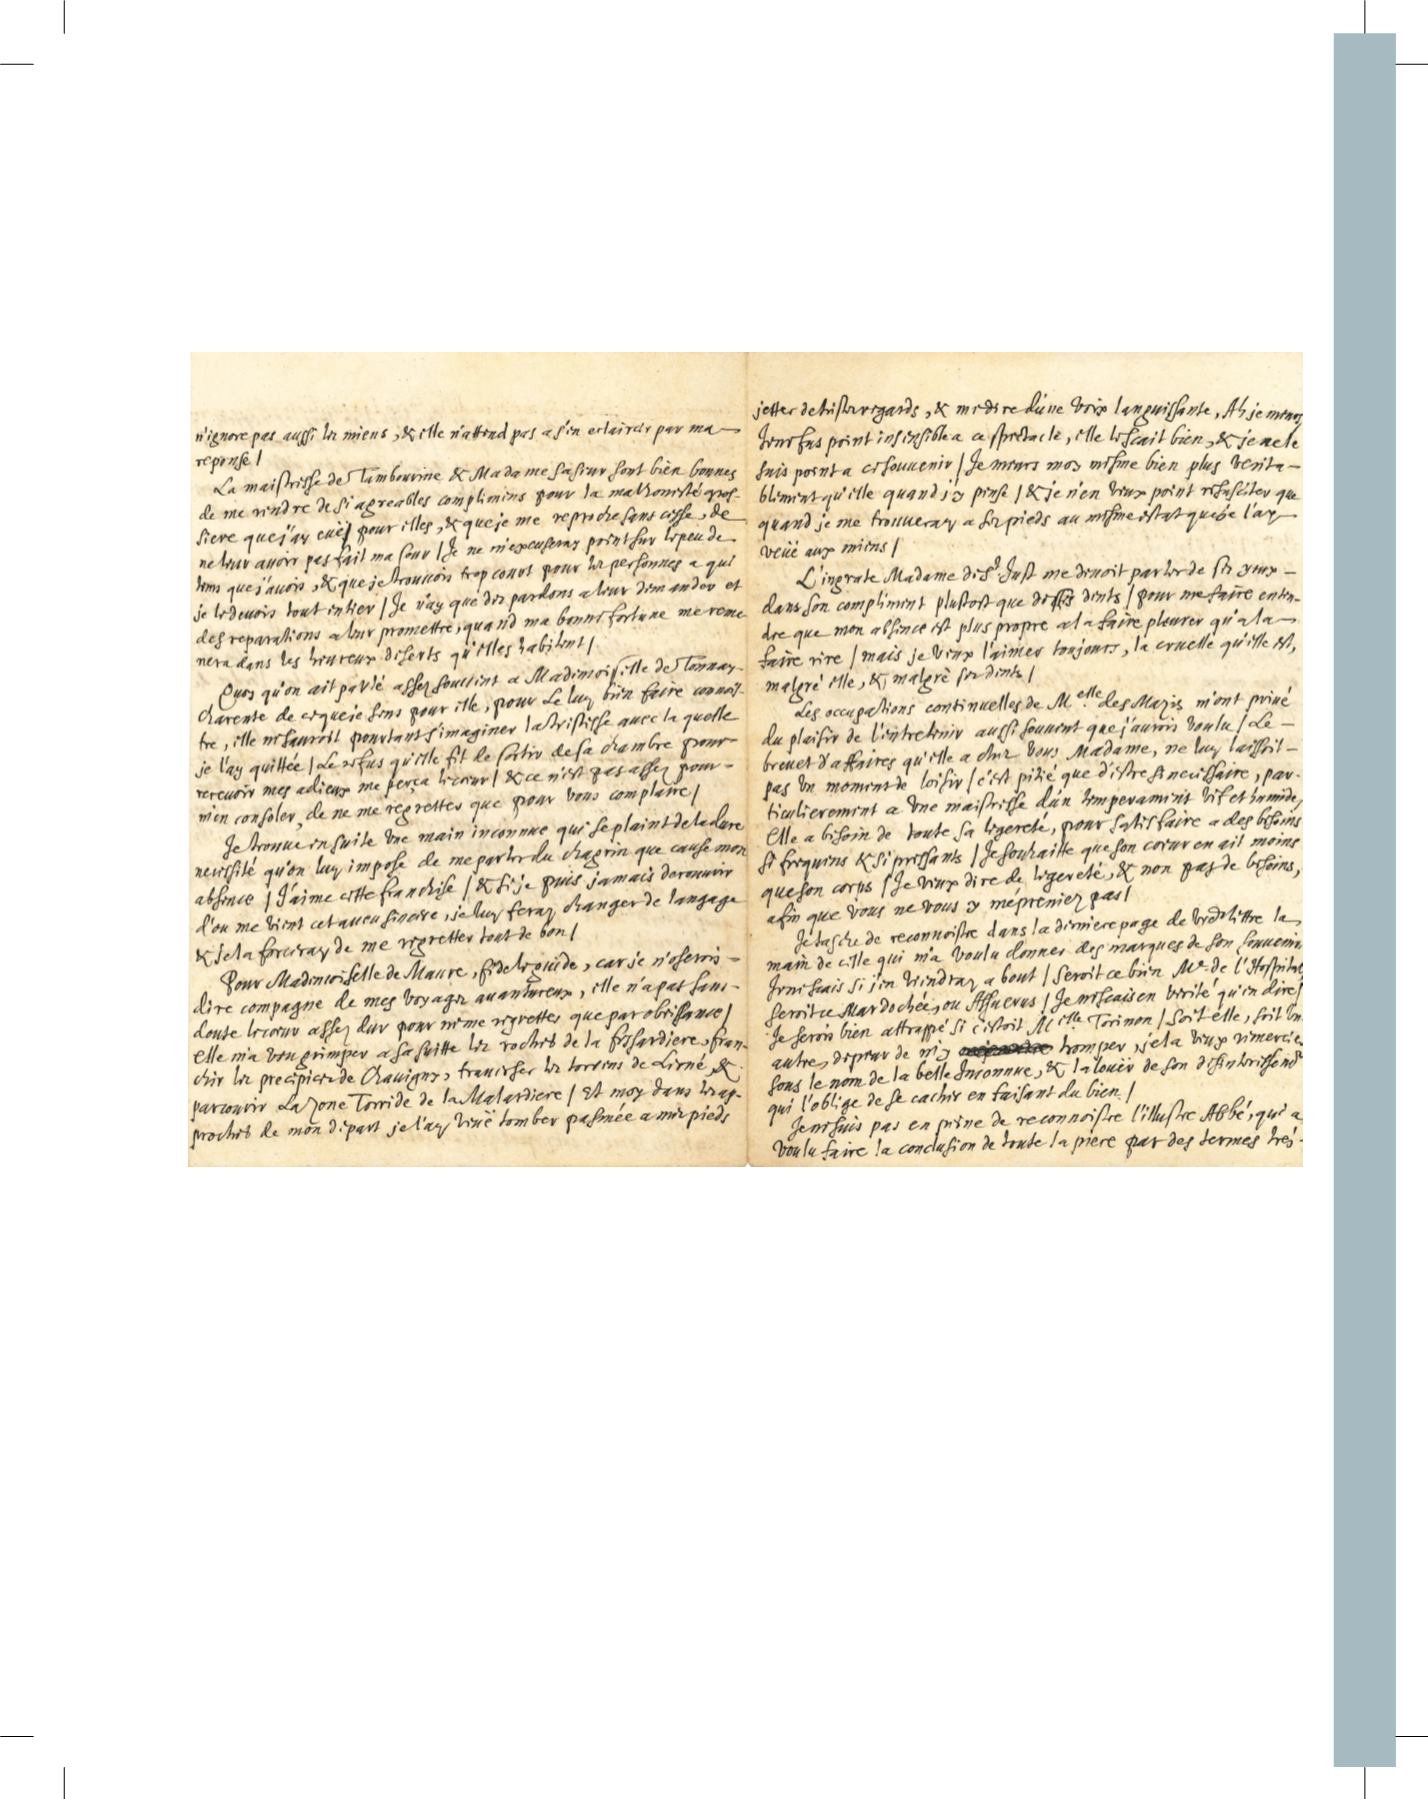 n'ignore pas aussi les miens, & elle n'attend pas a s'en eclaircir par ma
reponse /
La maistresse de Tambourine & Madame sa sœur sont bien bonnes
de me rendre de si agreables complimens pour la malhonesté gros-
siere que j'ay euë pour elles, & que je me reproche sans cesse, de
ne leur avoir pas fait ma cour / Je ne m'excuseray point sur le peu de
tems que j'avois, & que je trouvois trop court pour les personnes a qui
je le devois tout entier / Je n'ay que des pardons a leur demander et
des reparations a leur promettre, quand ma bonne fortune me reme
nera dans les heureux deserts qu'elles habitent /
Quoy qu'on ait parlé assez souvent a Mademoiselle de Tonnay-
charente de ce que je sens pour elle, pour le luy bien faire connoî-
tre, elle ne sauroit pourtant s'imaginer la tristesse avec la quelle
je l'ay quittée / Le refus qu'elle fit de sortir de sa chambre pour
recevoir mes adieux me perça le cœur / & ce n'est pas assez pour
m'en consoler, de ne me regretter que pour vous complaire /
Je trouve en suite une main inconnue qui se plaint de la dure
necessité qu'on luy impose de me parler du chagrin que cause mon
absence / J'aime cette franchise / & si je puis jamais decouvrir
d'ou me vient cet aveu sincere, je luy feray changer de langage
& je la forceray de me regretter tout de bon /
Pour Mademoiselle de Maure, fidele guide, car je n'oserois
dire compagne de mes voyages avantureux, elle n'a pas sans
doute le cœur assez dur pour ne me regretter que par obeissance /
Elle m'a veu grimper a sa suitte les rochers de la fessardiere, fran-
chir les precipices de Chavigny, traverser les torrens de Lerné, &
parcourir La Zone Torride de la Malardiere / Et moy dans les ap-
proches de mon depart je l'ay veuë tomber pasmée a mes pieds
jetter de tristes regards, & me dire d'une voix languissante, Ah je meurs
Je ne fus point insensible a ce spectacle, elle le scait bien, & je ne le
suis point a ce souvenir / Je meurs moy mesme bien plus verita-
blement qu'elle quand j'y pense / & je n'en veux point resusciter que
quand je me trouveray a ses pieds au mesme estat que je l'ay
veüe aux miens /
L'ingrate Madame de St. Just me devoit parler de ses yeux
dans son compliment plustost que de ses dents / pour me faire enten-
dre que mon absence est plus propre a la faire pleurer qu'a la
faire rire / mais je veux l'aimer toujours, la cruelle qu'elle est,
malgré elle, & malgré ses dents /
Les occupations continuelles de Melle des Marzis m'ont privé
du plaisir de l'entretenir aussi souvent que j'aurois voulu / Le
brevet d'affaires qu'elle a chez vous Madame, ne luy laissoit
pas un moment de loisir / c'est pitié que d'estre si necessaire, par-
ticulierement a une maistresse d'un temperament vif et humide,
Elle a besoin de toute sa legereté, pour satisfaire a des besoins
si frequens & si pressants / Je souhaitte que son cœur en ait moins
que son corps / Je veux dire de legereté, & non pas de besoins,
afin que vous ne vous y mépreniez pas /
Je tasche de reconnoistre dans la derniere page de vostre lettre la
main de celle qui m'a voulu donner des marques de son souvenir
Je ne scais si j'en viendray a bout / Seroit ce bien Me de l'Hospital
seroit ce Mardochée, ou Assuerus / Je ne scais en verité qu'en dire /
Je serois bien attrappé si c'estoit Melle Torinon / Soit elle, soit un
autre, de peur de m'y tromper, je la veux remercier
sous le nom de la belle Inconnue, & la loüer de son desinteressent
qui l'oblige de se cacher en faisant du bien. /
Je ne suis pas en peine de reconnoistre l'illustre Abbé, qui a
voulu faire la conclusion de toute la piece par des termes tres-